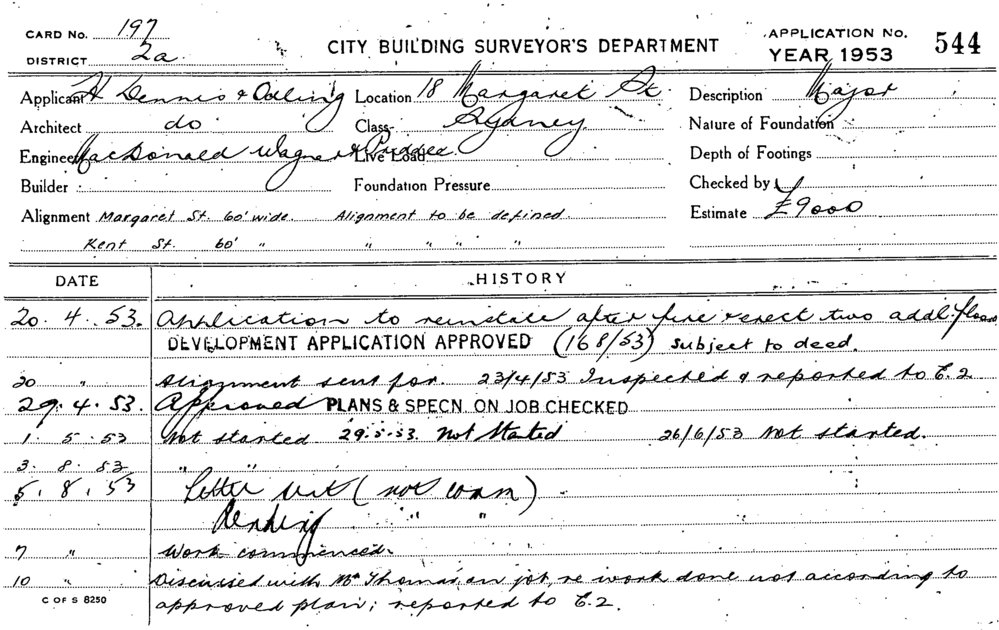 CARD No. 197
DISTRICT 2a.
CITY BUILDING SURVEYOR'S DEPARTMENT
APPLICATION No. 544
YEAR 1953
Applicant H Dennis & Location 18 Margaret St. Description Major
Architect do Class Sydney Nature of Foundation
Engineer MacDonald Wagner & Priddle. Live Load Depth of Footings
Builder Foundation Pressure Checked by
Alignment Margaret St. 60' wide. Alignment to be defined. Estimate £9000
Kent St. 60' " " " " "
DATE HISTORY
20. 4. 53. Application to reinstate after fire & erect two addl. floors
DEVELOPMENT APPLICATION APPROVED (168/53) subject to deed.
20 " Alignment sent for. 23/4/53 Inspected & reported to E.2
29. 4. 53. Approved PLANS & SPECN. ON JOB CHECKED
1. 5. 53 Not started 29.5.53. Not Started 26/6/53 Not started.
3. 8. 53 " "
5. 8. 53 Letter (not comm)
Pending " "
7 " Work commenced.
10 " Discussed with Mr Thomas on job, re work done not according to
C OF S 8250 approved plan; reported to E.2.